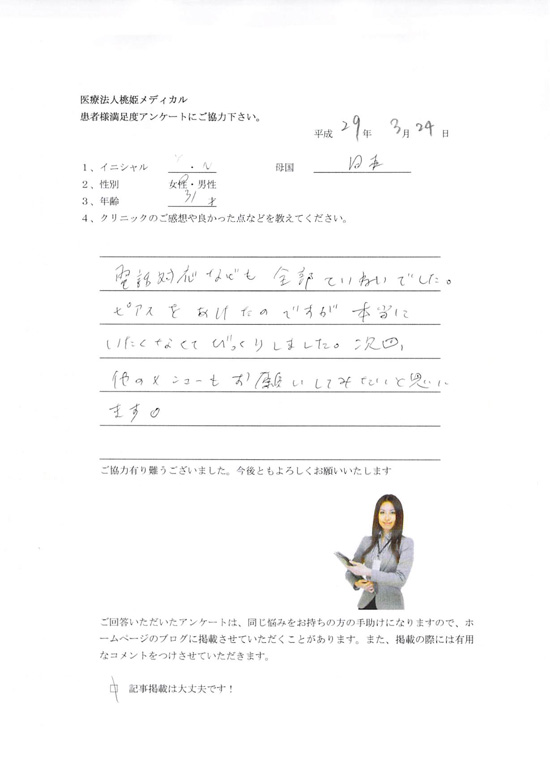 医療法人桃姫メディカル
患者様満足度アンケートにご協力下さい。
平成 29 年 3 月 24 日
1、イニシャル ・ N 母国 日本
2、性別 女性・男性
3、年齢 31 才
4、クリニックのご感想や良かった点などを教えてください。
電話対応なども全部ていねいでした。
ピアスをあけたのですが本当に
いたくなくてびっくりしました。次回、
他のメニューもお願いしてみたいと思い
ます。
ご協力有り難うございました。今後ともよろしくお願いいたします
ご回答いただいたアンケートは、同じ悩みをお持ちの方の手助けになりますので、ホ
ームページのブログに掲載させていただくことがあります。また、掲載の際には有用
なコメントをつけさせていただきます。
□ 記事掲載は大丈夫です！